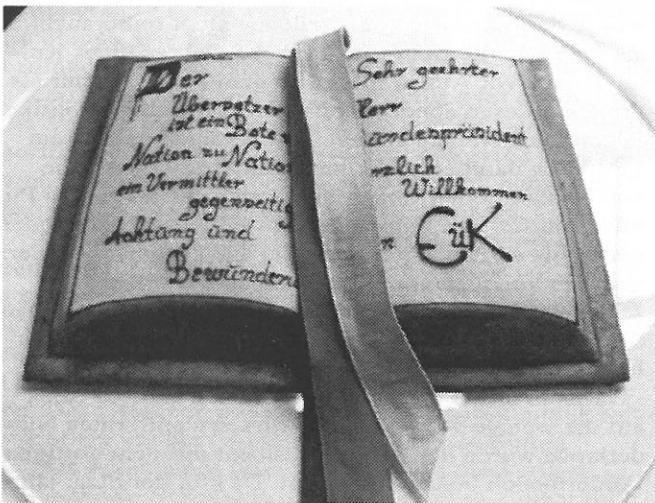 Der
Übersetzer
ist ein Bote
Nation zu Natio
ein Vermittler
gegenseitig
Achtung und
Bewundern
Sehr geehrter
Herr
undespräsident
rzlich
Willkommen
n EüK